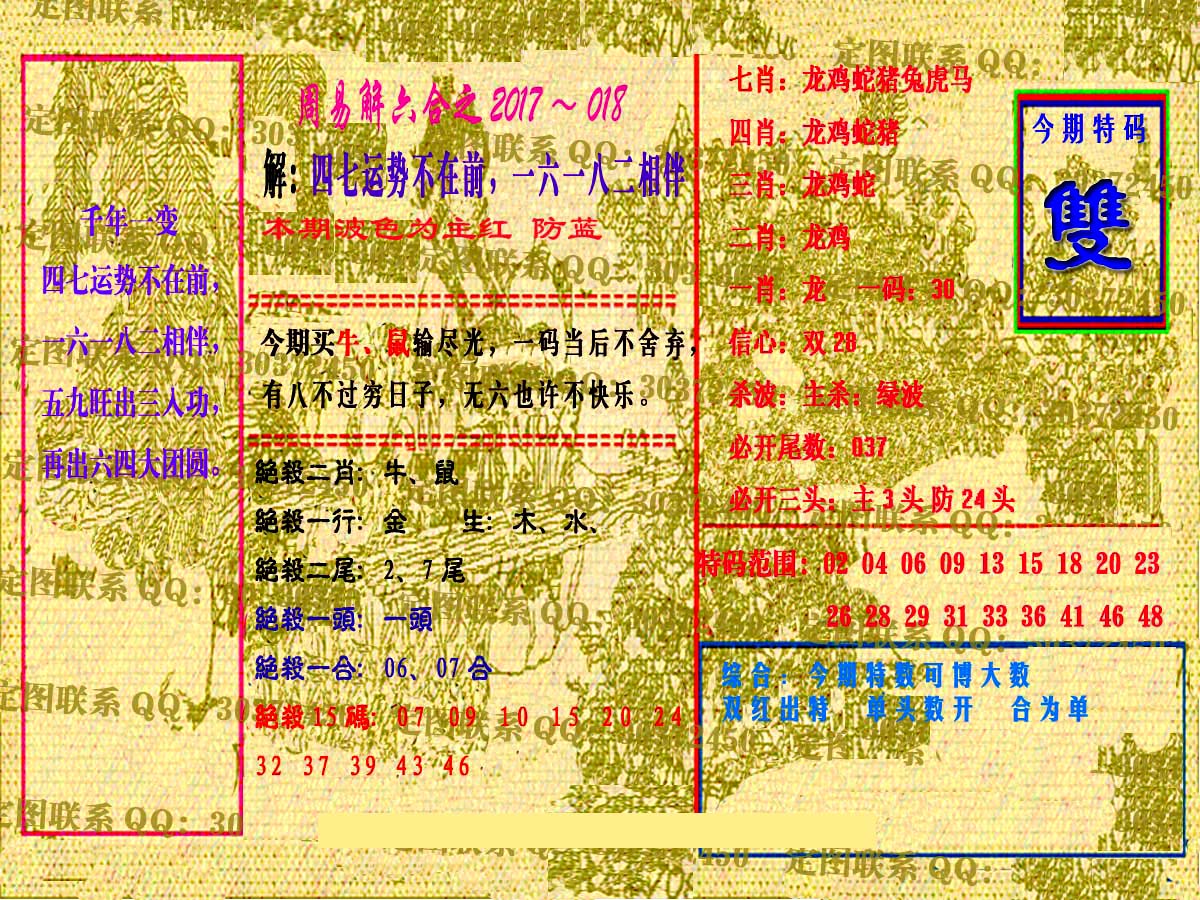 千年一变
四七运势不在前，
一六一八二相伴，
五九旺出三入功，
再出六四大团圆。
周易解六合之2017～018
解：四七运势不在前，一六一八二相伴
本期波色为主红 防蓝
今期买牛、鼠输尽光，一码当后不舍弃，
有八不过穷日子，无六也许不快乐。
絕殺二肖：牛、鼠
絕殺一行：金 生：木、水、
絕殺二尾：2、7尾
絕殺一頭：一頭
絕殺一合：06、07合
絕殺15碼：07 09 10 15 20 24
32 37 39 43 46
七肖：龙鸡蛇猪兔虎马
四肖：龙鸡蛇猪
三肖：龙鸡蛇
二肖：龙鸡
一肖：龙 一码：30
信心：双28
杀波：主杀：绿波
必开尾数：037
必开三头：主3头防24头
今期特码
雙
特码范围：02 04 06 09 13 15 18 20 23
26 28 29 31 33 36 41 46 48
综合：今期特数可博大数
双红出特，单头数开 合为单
定图联系QQ：